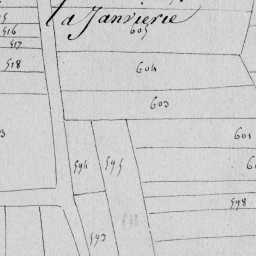 la Janvierie
605
516
517
518
604
603
601
594
595
598
593